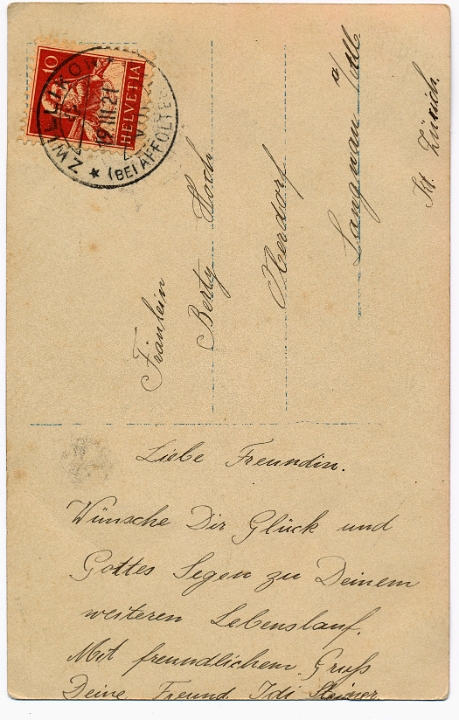 10
HELVETIA
ZWILLIKON
19.III.21
(BEI AFFOLTERN
Fräulein
Berty Hoch
Oberdorf
Langnau a/Alb.
Kt. Zürich.
Liebe Freundin.
Wünsche Dir Glück und
Gottes Segen zu Deinem
weiteren Lebenslauf.
Mit freundlichem Gruss
Deine Freund. Idi Steiner